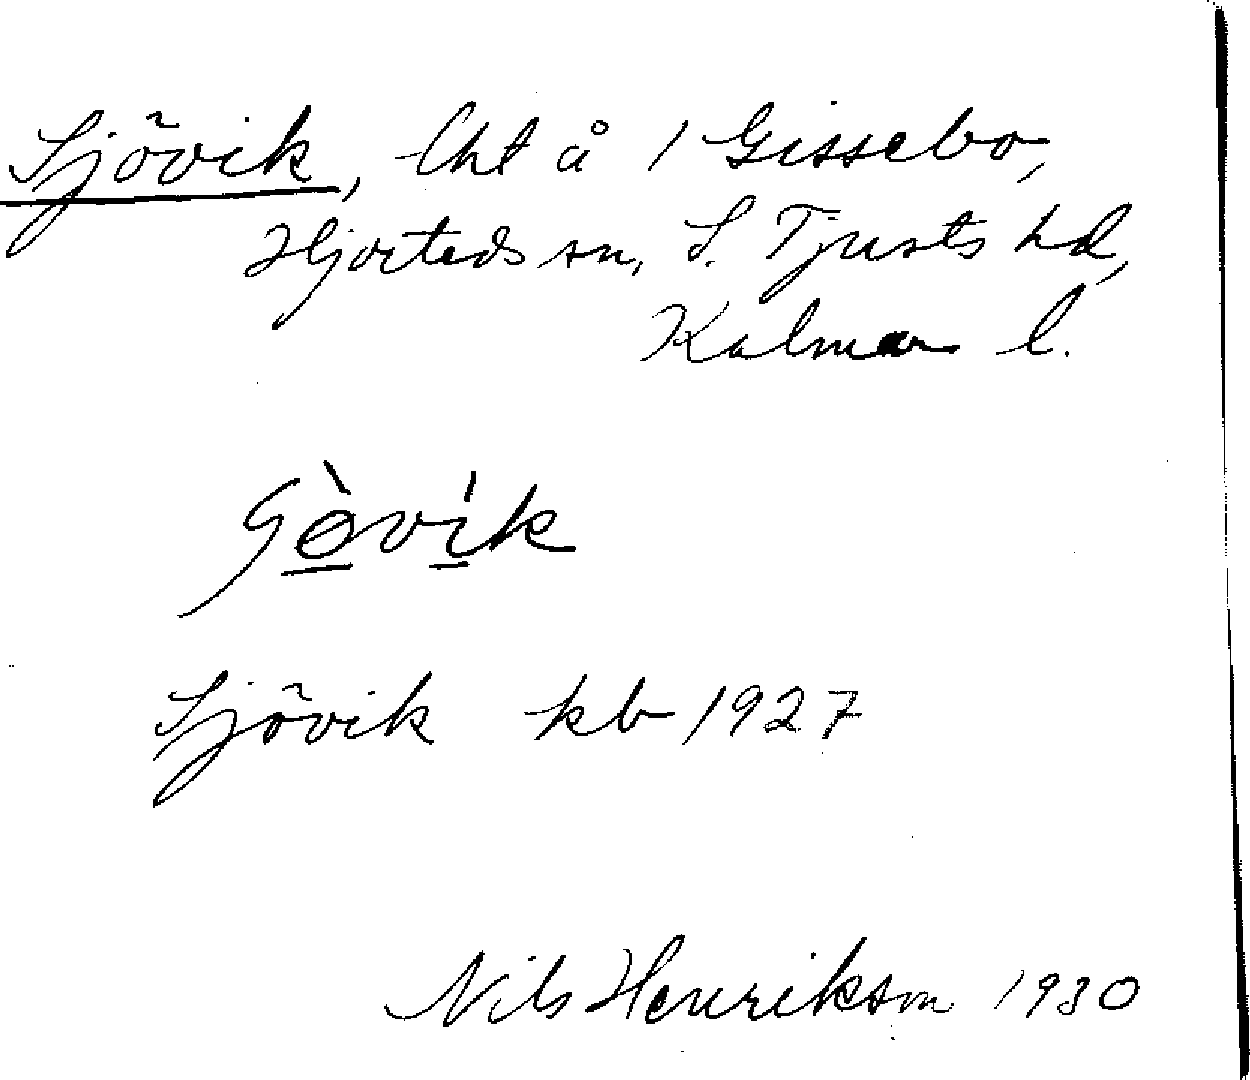 Sjövik, lht å 1 Gissebo,
Hjorteds sn, S. Tjusts hd,
Kalmar l.
Sjövik kb 1927
Nils Henrikson 1930